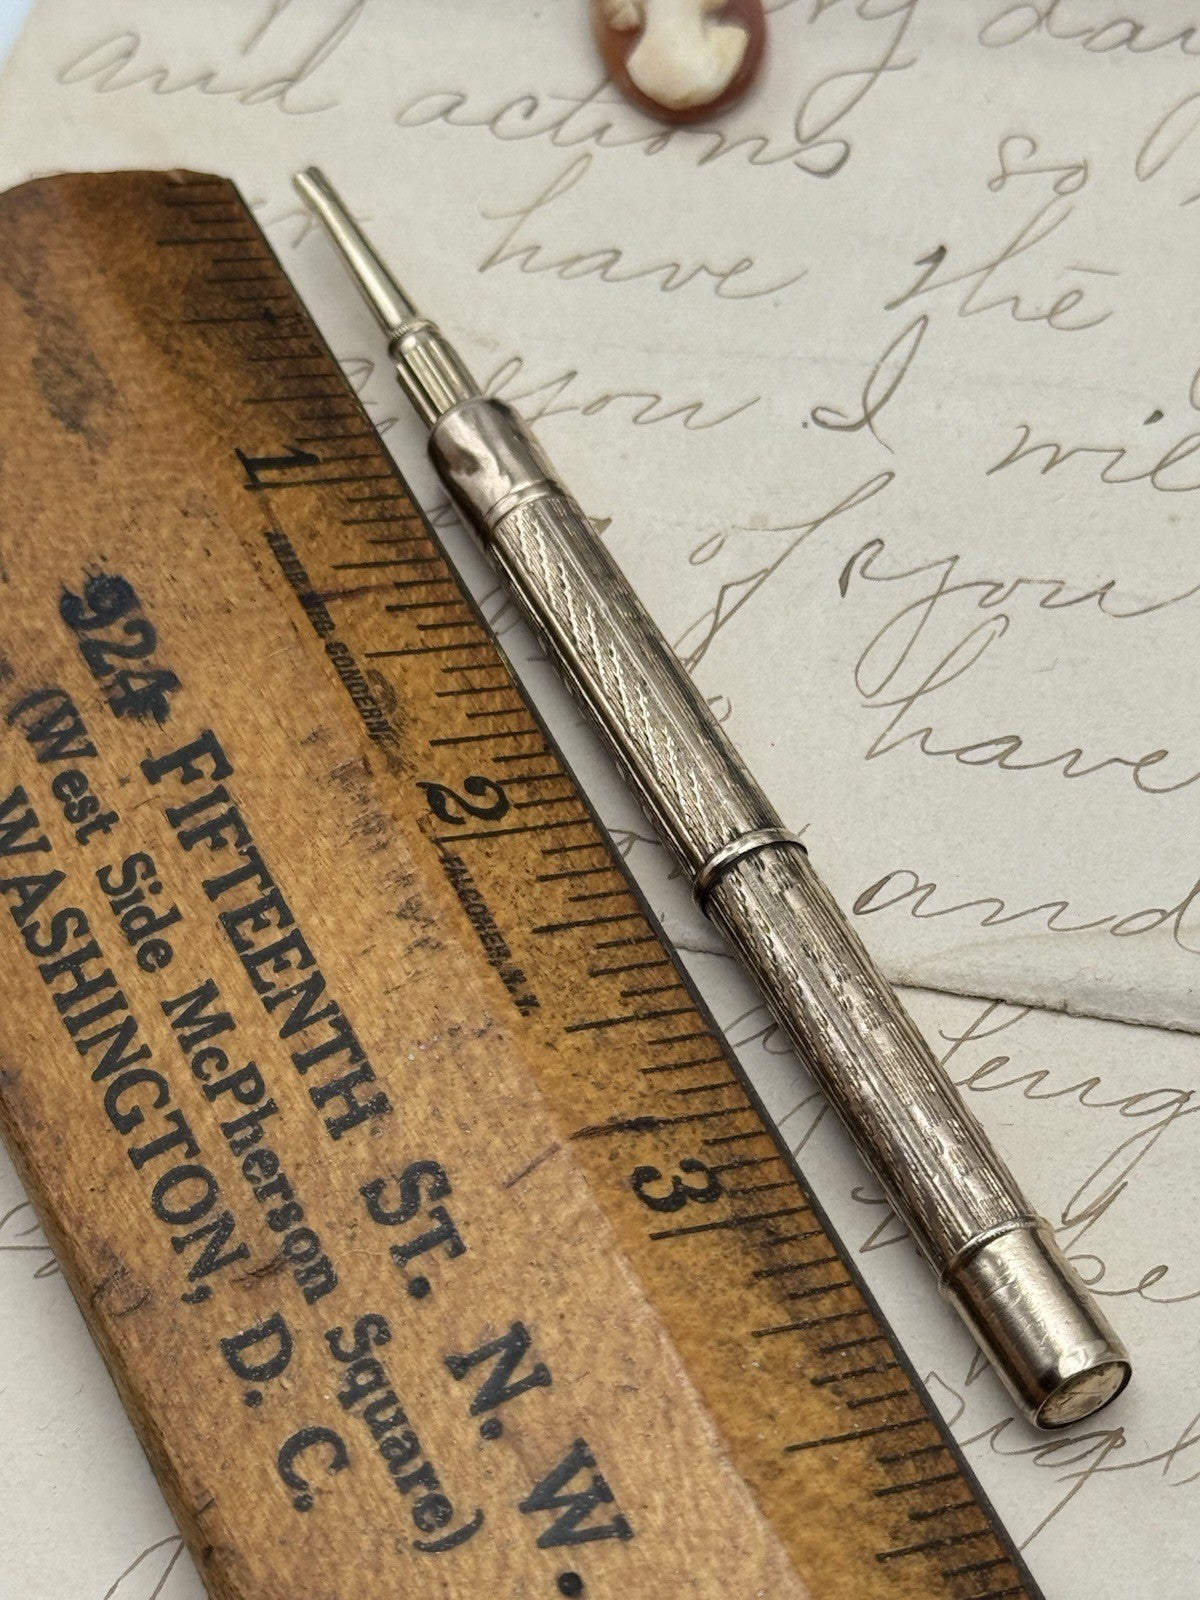 and
every day
and actions so
have the
you I will
of you
have
and
1
AMER. MFG. CONCERN
2
FALCONER, N.Y.
3
924 FIFTEENTH ST. N. W.
(West Side McPherson Square)
WASHINGTON, D. C.